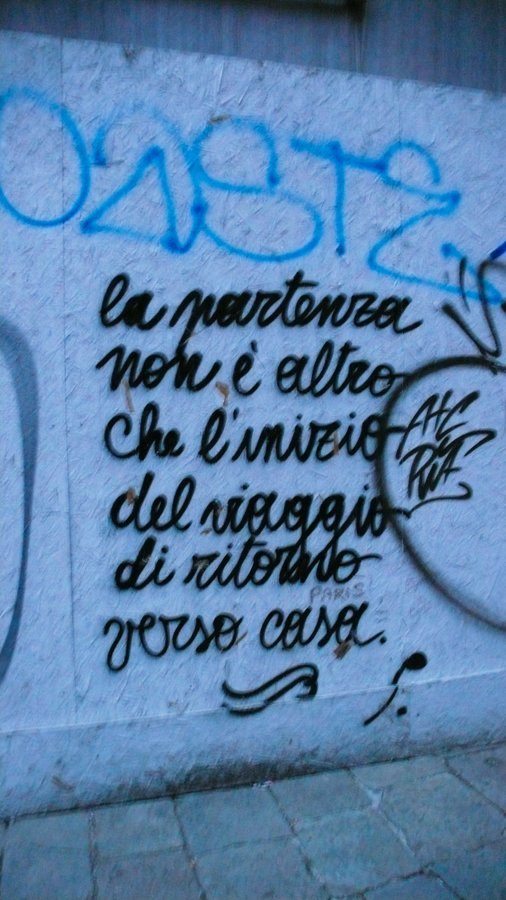 la partenza
non è altro
che l'inizio
del viaggio
di ritorno
PARIS
verso casa.